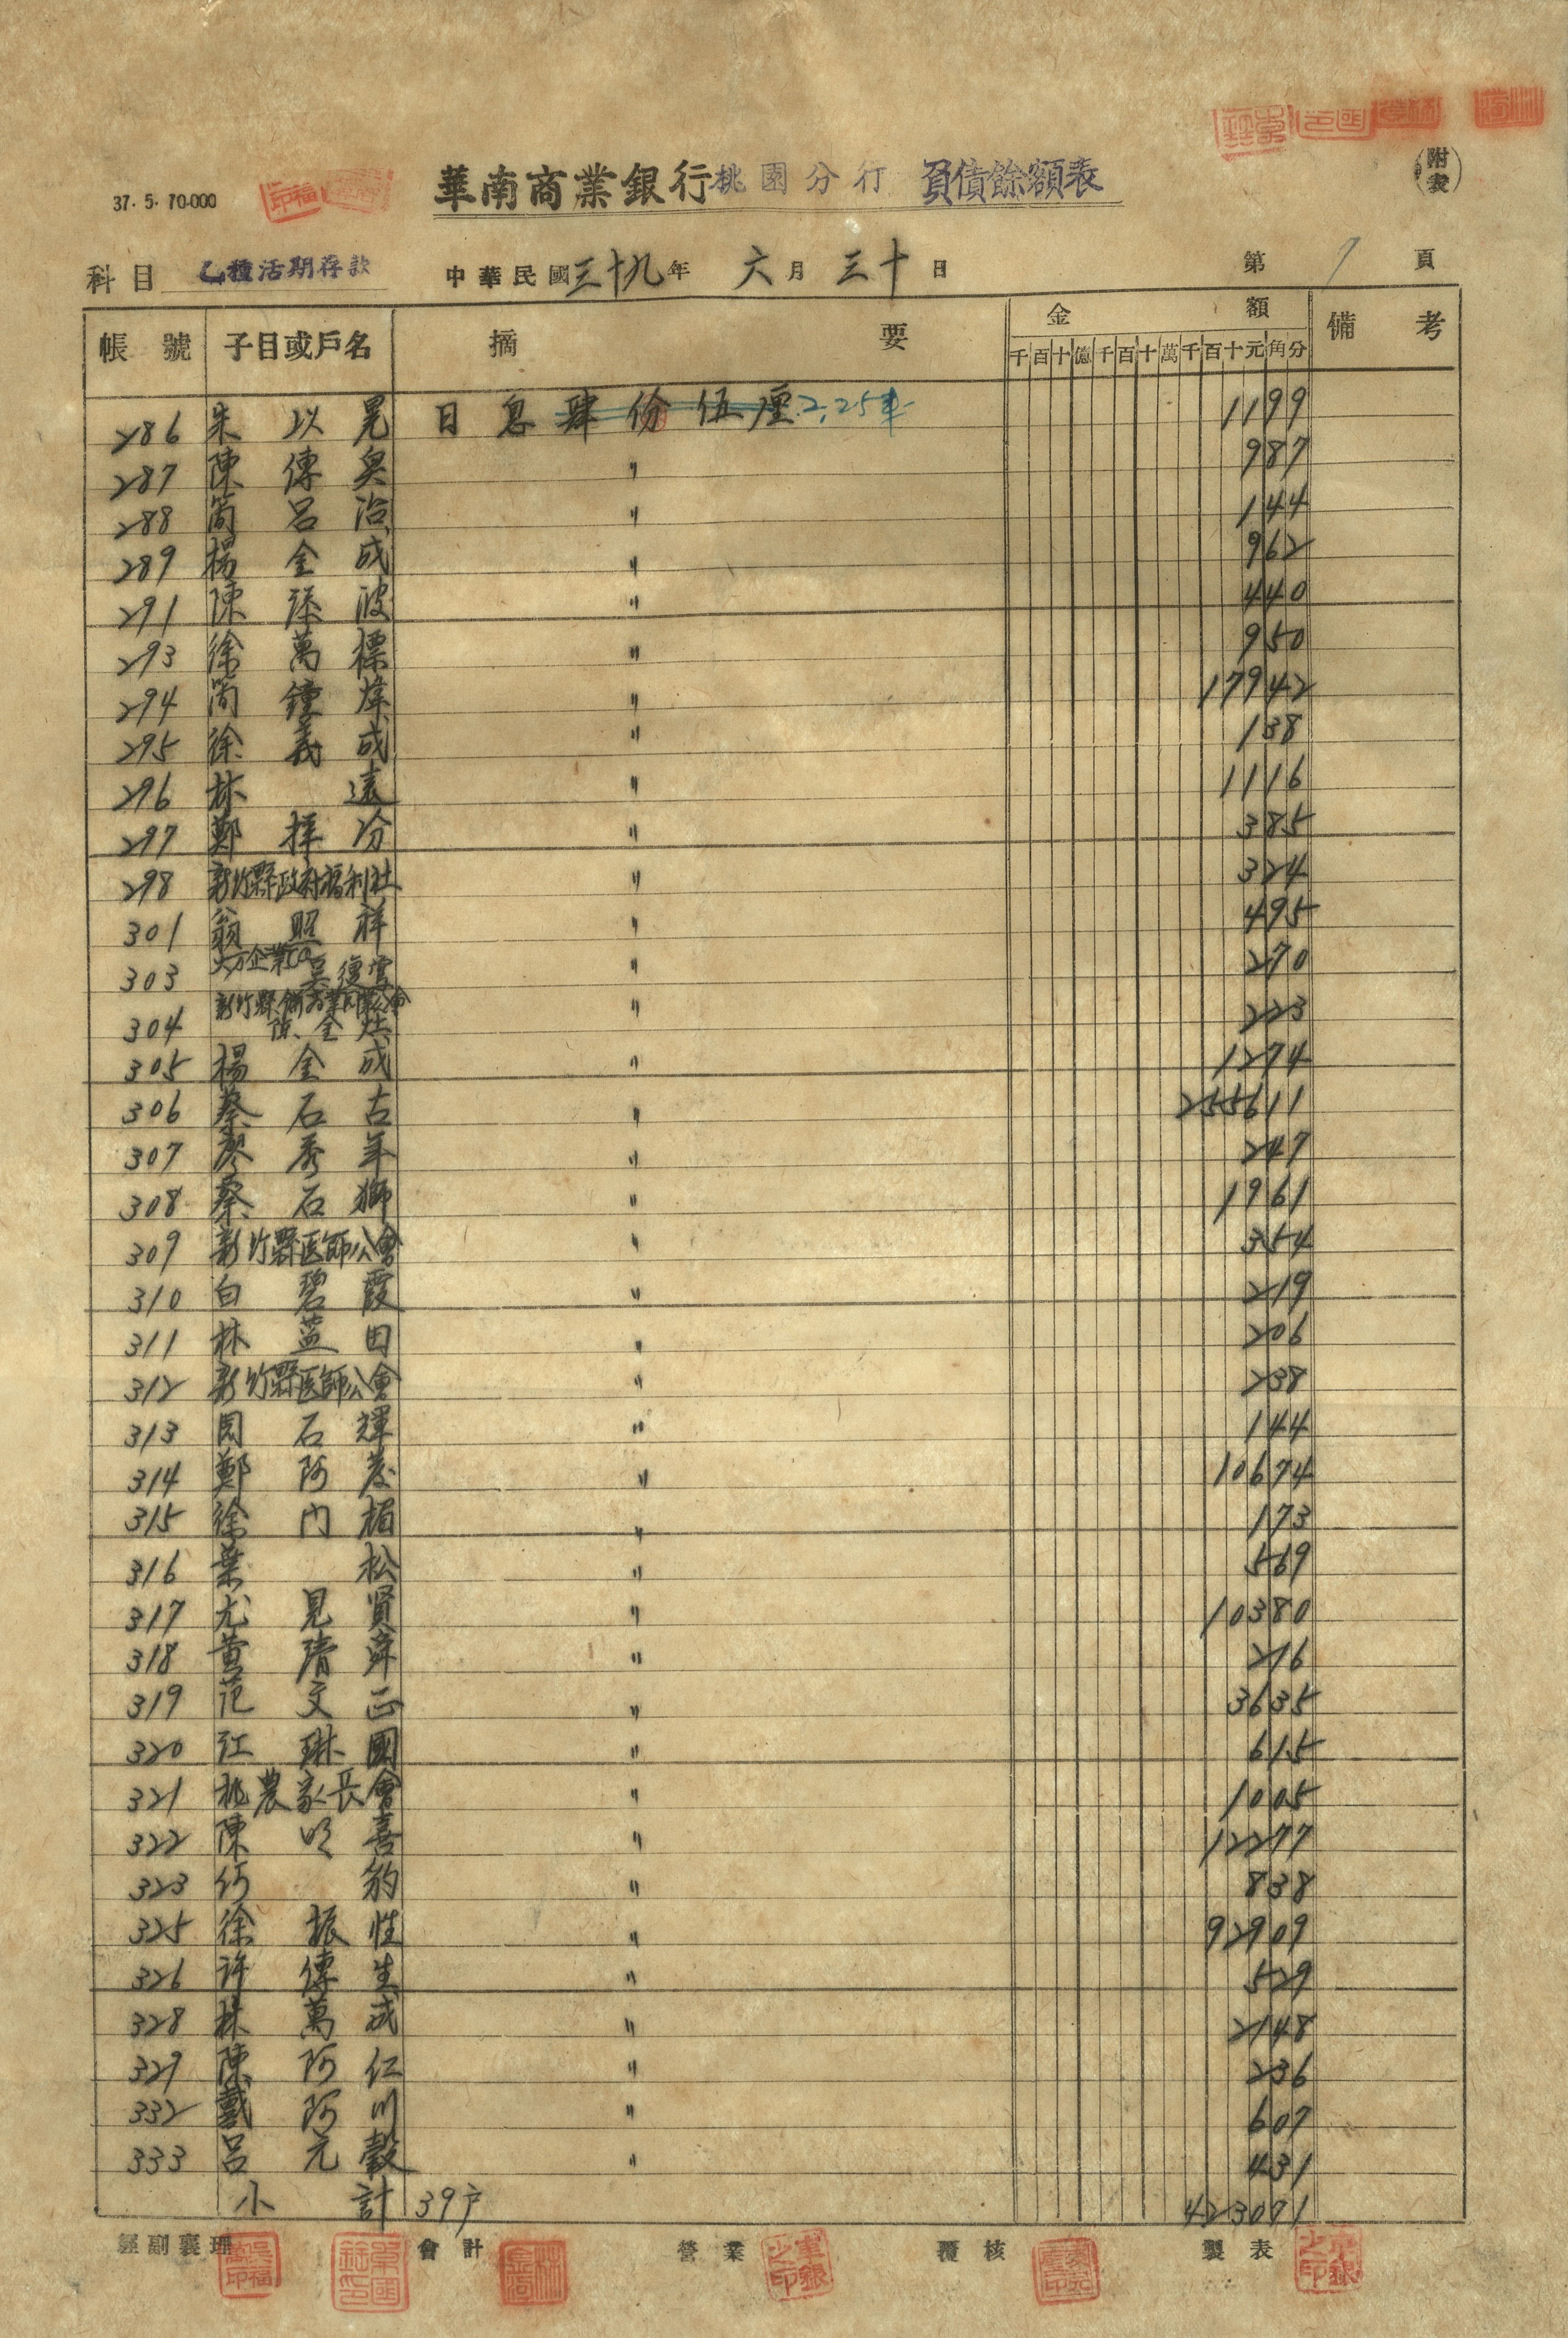 附表
37.5.70-000 華南商業銀行桃園分行 負債餘額表
科目 乙種活期存款 中華民國三十九年 六月三十日 第 7 頁
帳號 子目或戶名 摘要 金額 備考
千百十億千百十萬千百十元角分
286 朱以晃 日息肆份伍厘 2.25 1199
287 陳傳臭 〃 987
288 簡呂治 〃 144
289 楊金成 〃 962
291 陳添波 〃 440
293 徐萬標 〃 950
294 簡鐘煒 〃 17942
295 徐義成 〃 138
296 林遠 〃 1116
297 鄭拜汾 〃 385
298 新竹縣政府福利社 〃 324
301 翁照祥 〃 495
303 大方企業CO 吳復雲 〃 270
304 新竹縣 商業同業公會 陳金灶 〃 223
305 楊金成 〃 1274
306 蔡石古 〃 255611
307 廖秀年 〃 247
308 蔡石獅 〃 1961
309 新竹縣医師公會 〃 354
310 白碧霞 〃 219
311 林蓝田 〃 206
312 新竹縣医師公會 〃 238
313 周石輝 〃 144
314 鄭阿葵 〃 10674
315 徐門楣 〃 173
316 葉松 〃 569
317 尤見賢 〃 10380
318 黃清萍 〃 276
319 范文正 〃 3635
320 江琳國 〃 615
321 桃農家長會 〃 1005
322 陳明喜 〃 12277
323 何豹 〃 838
325 徐振性 〃 92909
326 許傳生 〃 529
328 林萬成 〃 2148
329 陳阿仁 〃 236
332 戴阿川 〃 607
333 呂元毅 〃 431
小計 39戶 423071
經副襄理 會計 營業 覆核 製表